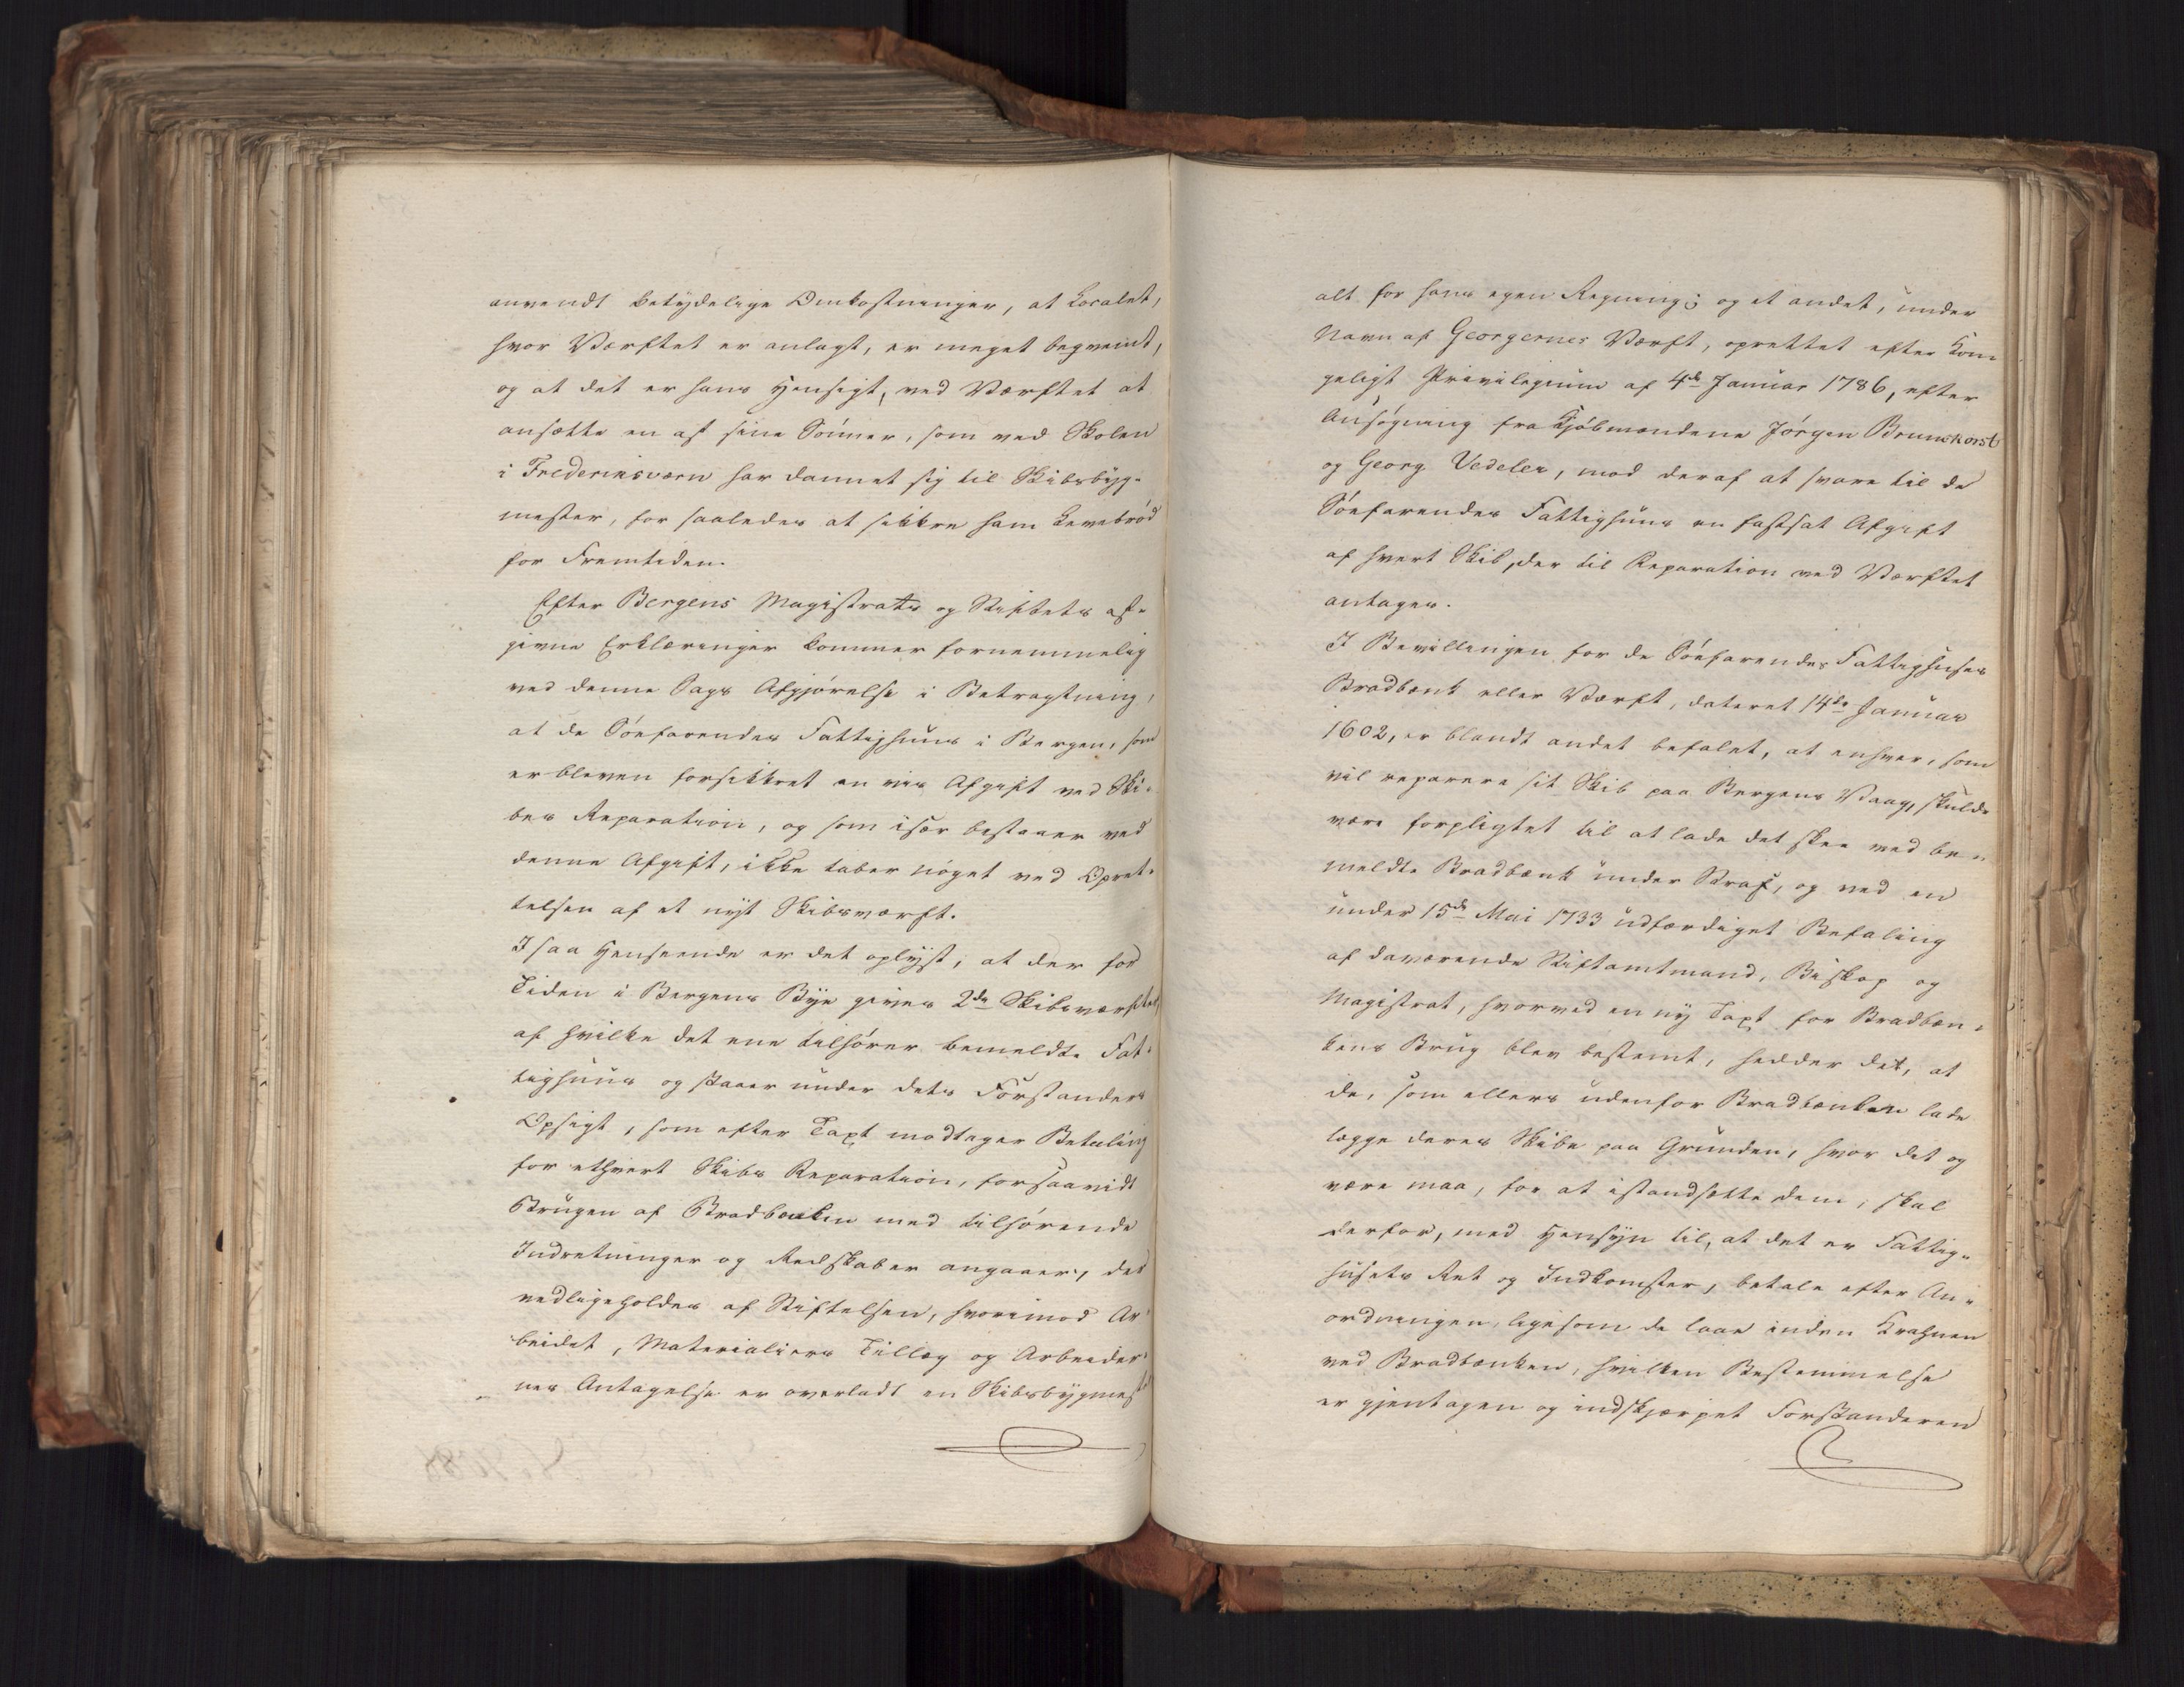 anvendt betydelige Omkostninger, at Localet,
hvor Værftet er anlagt, er meget beqvemt,
og at det er hans Hensigt, ved Værftet at
ansætte en af sine Sønner, som ved Skolen
i Frederiksværn har dannet sig til Skibsbyg-
mester, for saaledes at sikkre ham Levebrød
for Fremtiden.
Efter Bergens Magistrats og Stiftets af-
givne Erklæringer kommer fornemmelig
ved denne Sags Afgjørelse i Betragtning,
at de Søefarendes Fattighuus i Bergen, som
er bleven forsikkret en vis Afgift ved Ski-
bes Reparation, og som især bestaaer ved
denne Afgift, ikke taber noget ved Opret-
telsen af et nyt Skibsværft.
I saa Henseende er det oplyst, at der for
Tiden i Bergens Bye gives 2de Skibsværfter,
af hvilke det ene tilhører bemeldte Fat-
tighuus og staaer under dets Forstanders
Opsigt, som efter Taxt modtager Betaling
for ethvert Skibs Reparation, forsaavidt
Brugen af Bradbænken med tilhørende
Indretninger og Redskaber angaaer, der
vedligeholdes af Stiftelsen, hvorimod Ar-
beidet, Materialiers Tillæg og Arbeider-
nes Antagelse er overladt en Skibsbygmester
alt for hans egen Regning; og et andet, under
Navn af Georgernes Værft, oprettet efter Kon-
geligt Privilegium af 4de Januar 1786, efter
Ansøgning fra Kjøbmændene Jørgen Brunshorst
og Georg Vedeler, mod deraf at svare til de
Søefarendes Fattighuus en fastsat Afgift
af hvert Skib, der til Reparation ved Værftet
antages.
I Bevillingen for de Søefarendes Fattighuses
Bradbænk eller Værft, dateret 14de Januar
1602, er blandt andet befalet, at enhver, som
vil reparere sit Skib paa Bergens Vaag, skulde
være forpligtet til at lade det skee ved be-
meldte Bradbænk under Straf, og ved en
under 15de Mai 1733 udfærdiget Befaling
af daværende Stiftamtmand, Biskop og
Magistrat, hvorved en ny Taxt for Bradbæn-
kens Brug blev bestemt, hedder det, at
de, som ellers udenfor Bradbænken lade
lægge deres Skibe paa Grunden, hvor det og
være maa, for at istandsætte dem, skal
derfor, med Hensyn til, at det er Fattig-
husets Ret og Indkomster, betale efter An-
ordningen, ligesom de laae inden Krahnen
ved Bradbænken, hvilken Bestemmelse
er gjentagen og indskjærpet Forstanderen